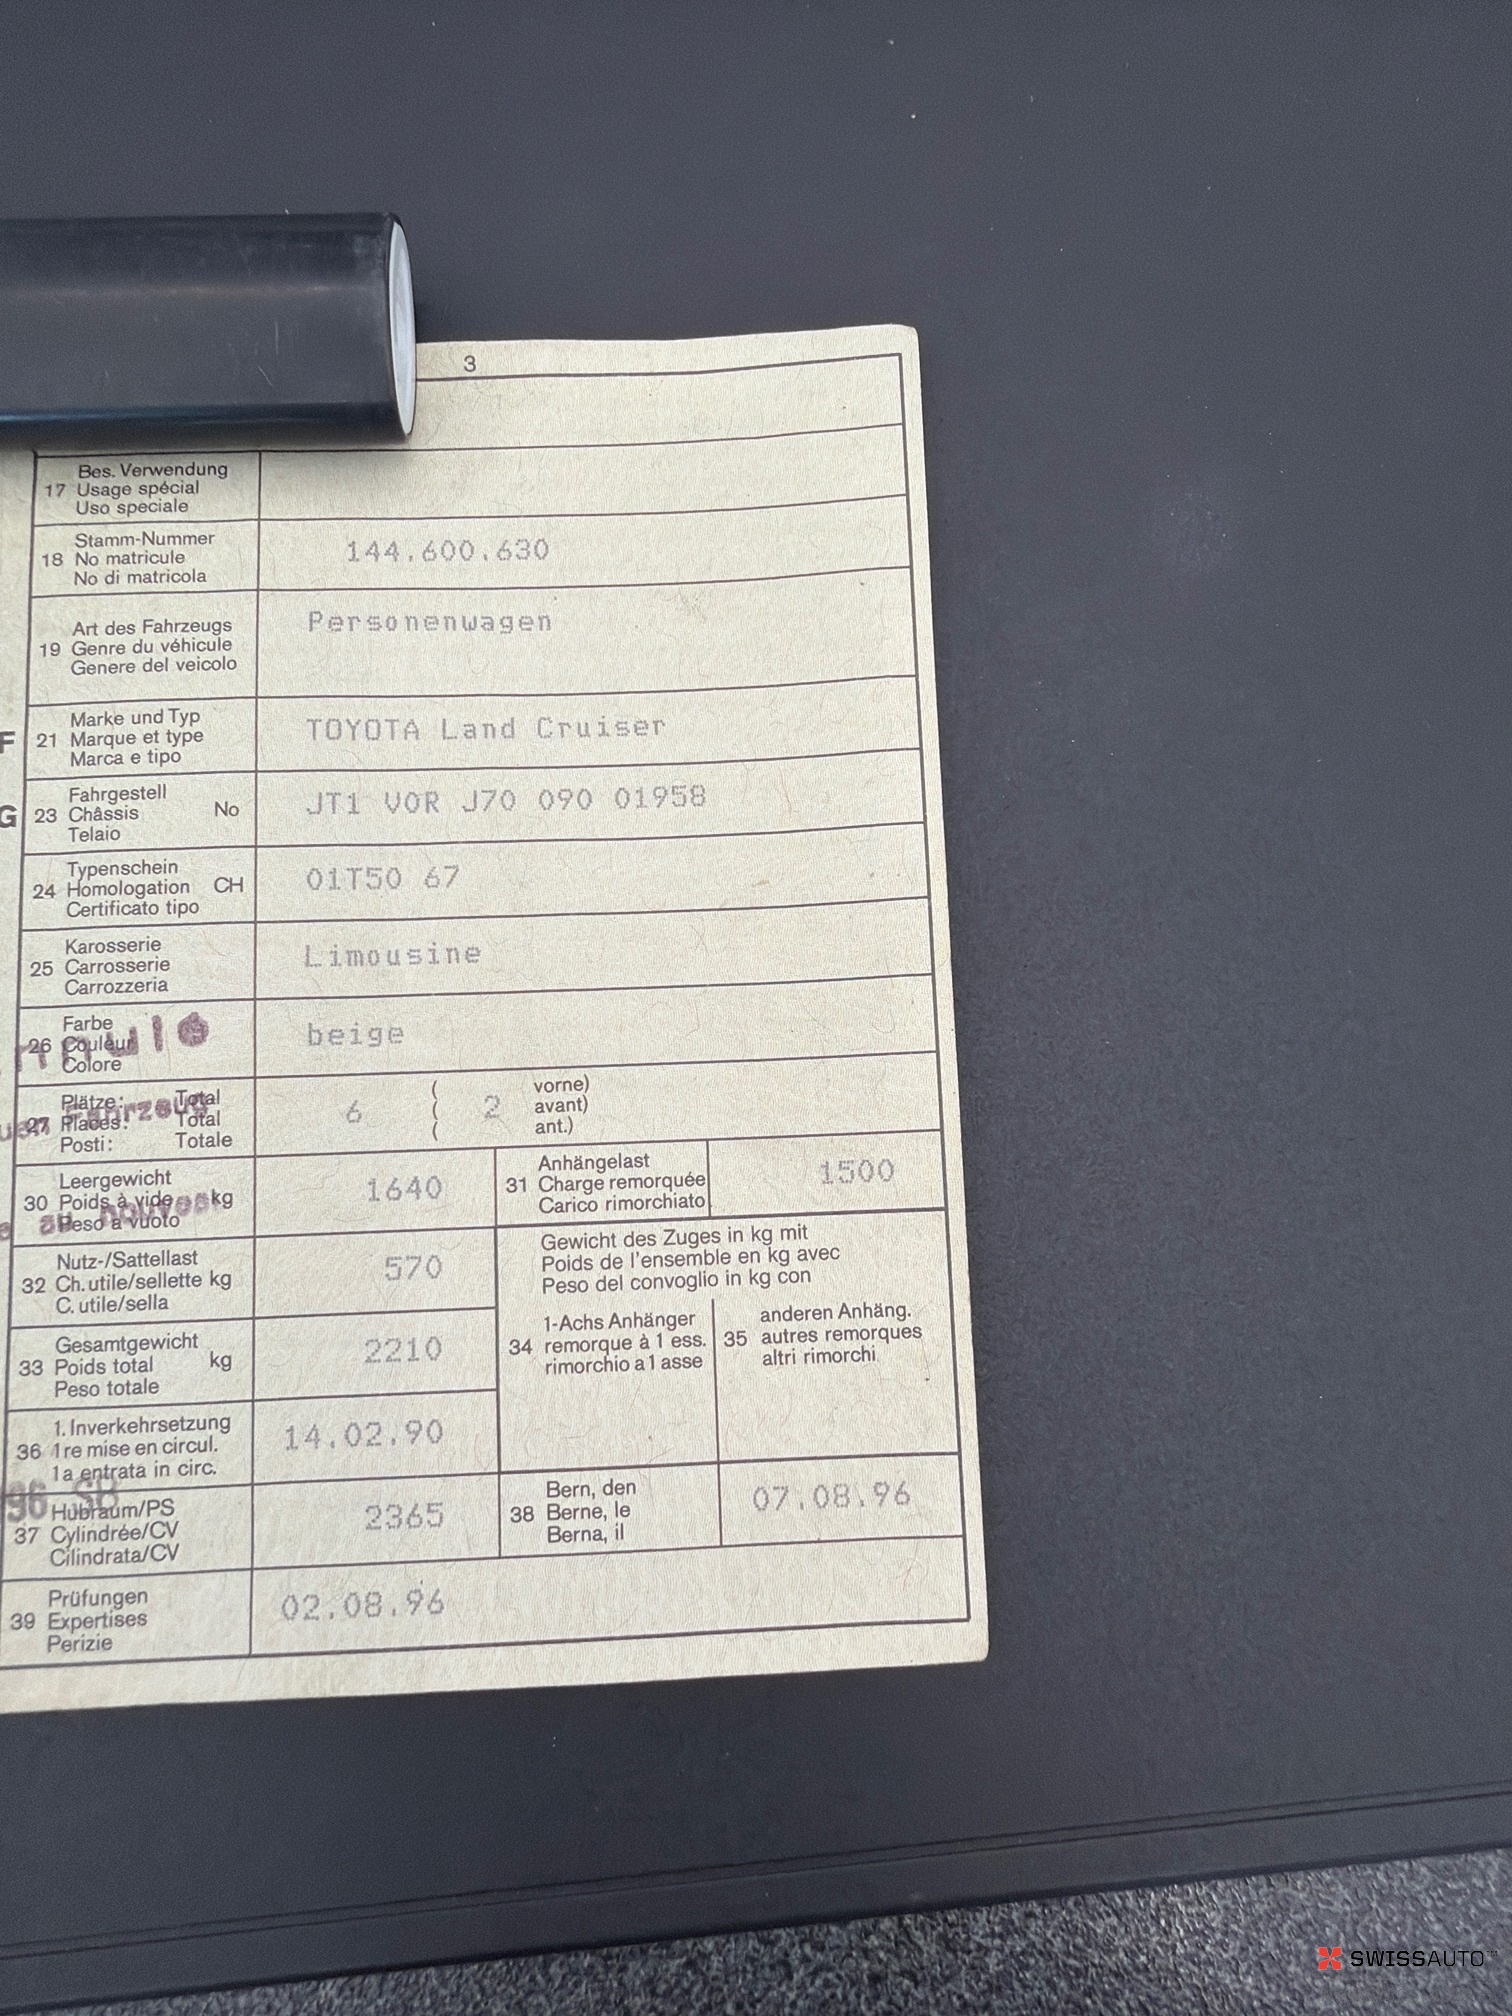 3
Bes. Verwendung
17 Usage spécial
Uso speciale
Stamm-Nummer
18 No matricule
No di matricola
144.600.630
Art des Fahrzeugs
19 Genre du véhicule
Genere del veicolo
Personenwagen
F
Marke und Typ
21 Marque et type
Marca e tipo
TOYOTA Land Cruiser
G
Fahrgestell
23 Châssis No
Telaio
JT1 VOR J70 090 01958
Typenschein
24 Homologation CH
Certificato tipo
01T50 67
Karosserie
25 Carrosserie
Carrozzeria
Limousine
Farbe
26 Couleur
Colore
beige
Plätze: Total
27 Places: Total
Posti: Totale
6 ( 2
vorne)
avant)
ant.)
Fahrzeug
Leergewicht
30 Poids à vide kg
Peso a vuoto
1640
Anhängelast
31 Charge remorquée
Carico rimorchiato
1500
Nutz-/Sattellast
32 Ch. utile/sellette kg
C. utile/sella
570
Gewicht des Zuges in kg mit
Poids de l'ensemble en kg avec
Peso del convoglio in kg con
1-Achs Anhänger
34 remorque à 1 ess.
rimorchio a 1 asse
anderen Anhäng.
35 autres remorques
altri rimorchi
Gesamtgewicht
33 Poids total kg
Peso totale
2210
1. Inverkehrsetzung
36 1re mise en circul.
1a entrata in circ.
14.02.90
96 SB
Hubraum/PS
37 Cylindrée/CV
Cilindrata/CV
2365
Bern, den
38 Berne, le
Berna, il
07.08.96
Prüfungen
39 Expertises
Perizie
02.08.96
SWISSAUTO™